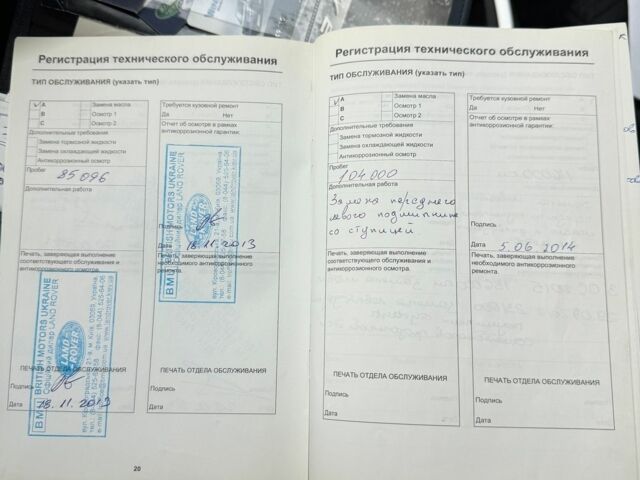 Регистрация технического обслуживания
ТИП ОБСЛУЖИВАНИЯ (указать тип)
A Замена масла
B Осмотр 1
C Осмотр 2
Дополнительные требования
Замена тормозной жидкости
Замена охлаждающей жидкости
Антикоррозионный осмотр
Пробег
85 096
Дополнительная работа
Печать, заверяющая выполнение
соответствующего обслуживания и
антикоррозионного осмотра.
BMU BRITISH MOTORS UKRAINE
Офіційний дилер LAND ROVER
LAND ROVER
ПЕЧАТЬ ОТДЕЛА ОБСЛУЖИВАНИЯ
Подпись
Дата 18.11.2013
Требуется кузовной ремонт
Да Нет
Отчет об осмотре в рамках
антикоррозионной гарантии:
BMU BRITISH MOTORS UKRAINE
Офіційний дилер LAND ROVER
LAND ROVER
Подпись
Дата 18.11.2013
Печать, заверяющая выполнение
необходимого антикоррозионного
ремонта.
ПЕЧАТЬ ОТДЕЛА ОБСЛУЖИВАНИЯ
Подпись
Дата
20
Регистрация технического обслуживания
ТИП ОБСЛУЖИВАНИЯ (указать тип)
A Замена масла
B Осмотр 1
C Осмотр 2
Дополнительные требования
Замена тормозной жидкости
Замена охлаждающей жидкости
Антикоррозионный осмотр
Пробег
104 000
Дополнительная работа
Замена переднего
левого подшипника
со ступицей
Печать, заверяющая выполнение
соответствующего обслуживания и
антикоррозионного осмотра.
ПЕЧАТЬ ОТДЕЛА ОБСЛУЖИВАНИЯ
Подпись
Дата
Требуется кузовной ремонт
Да Нет
Отчет об осмотре в рамках
антикоррозионной гарантии:
Подпись
Дата 5.06.2014
Печать, заверяющая выполнение
необходимого антикоррозионного
ремонта.
ПЕЧАТЬ ОТДЕЛА ОБСЛУЖИВАНИЯ
Подпись
Дата